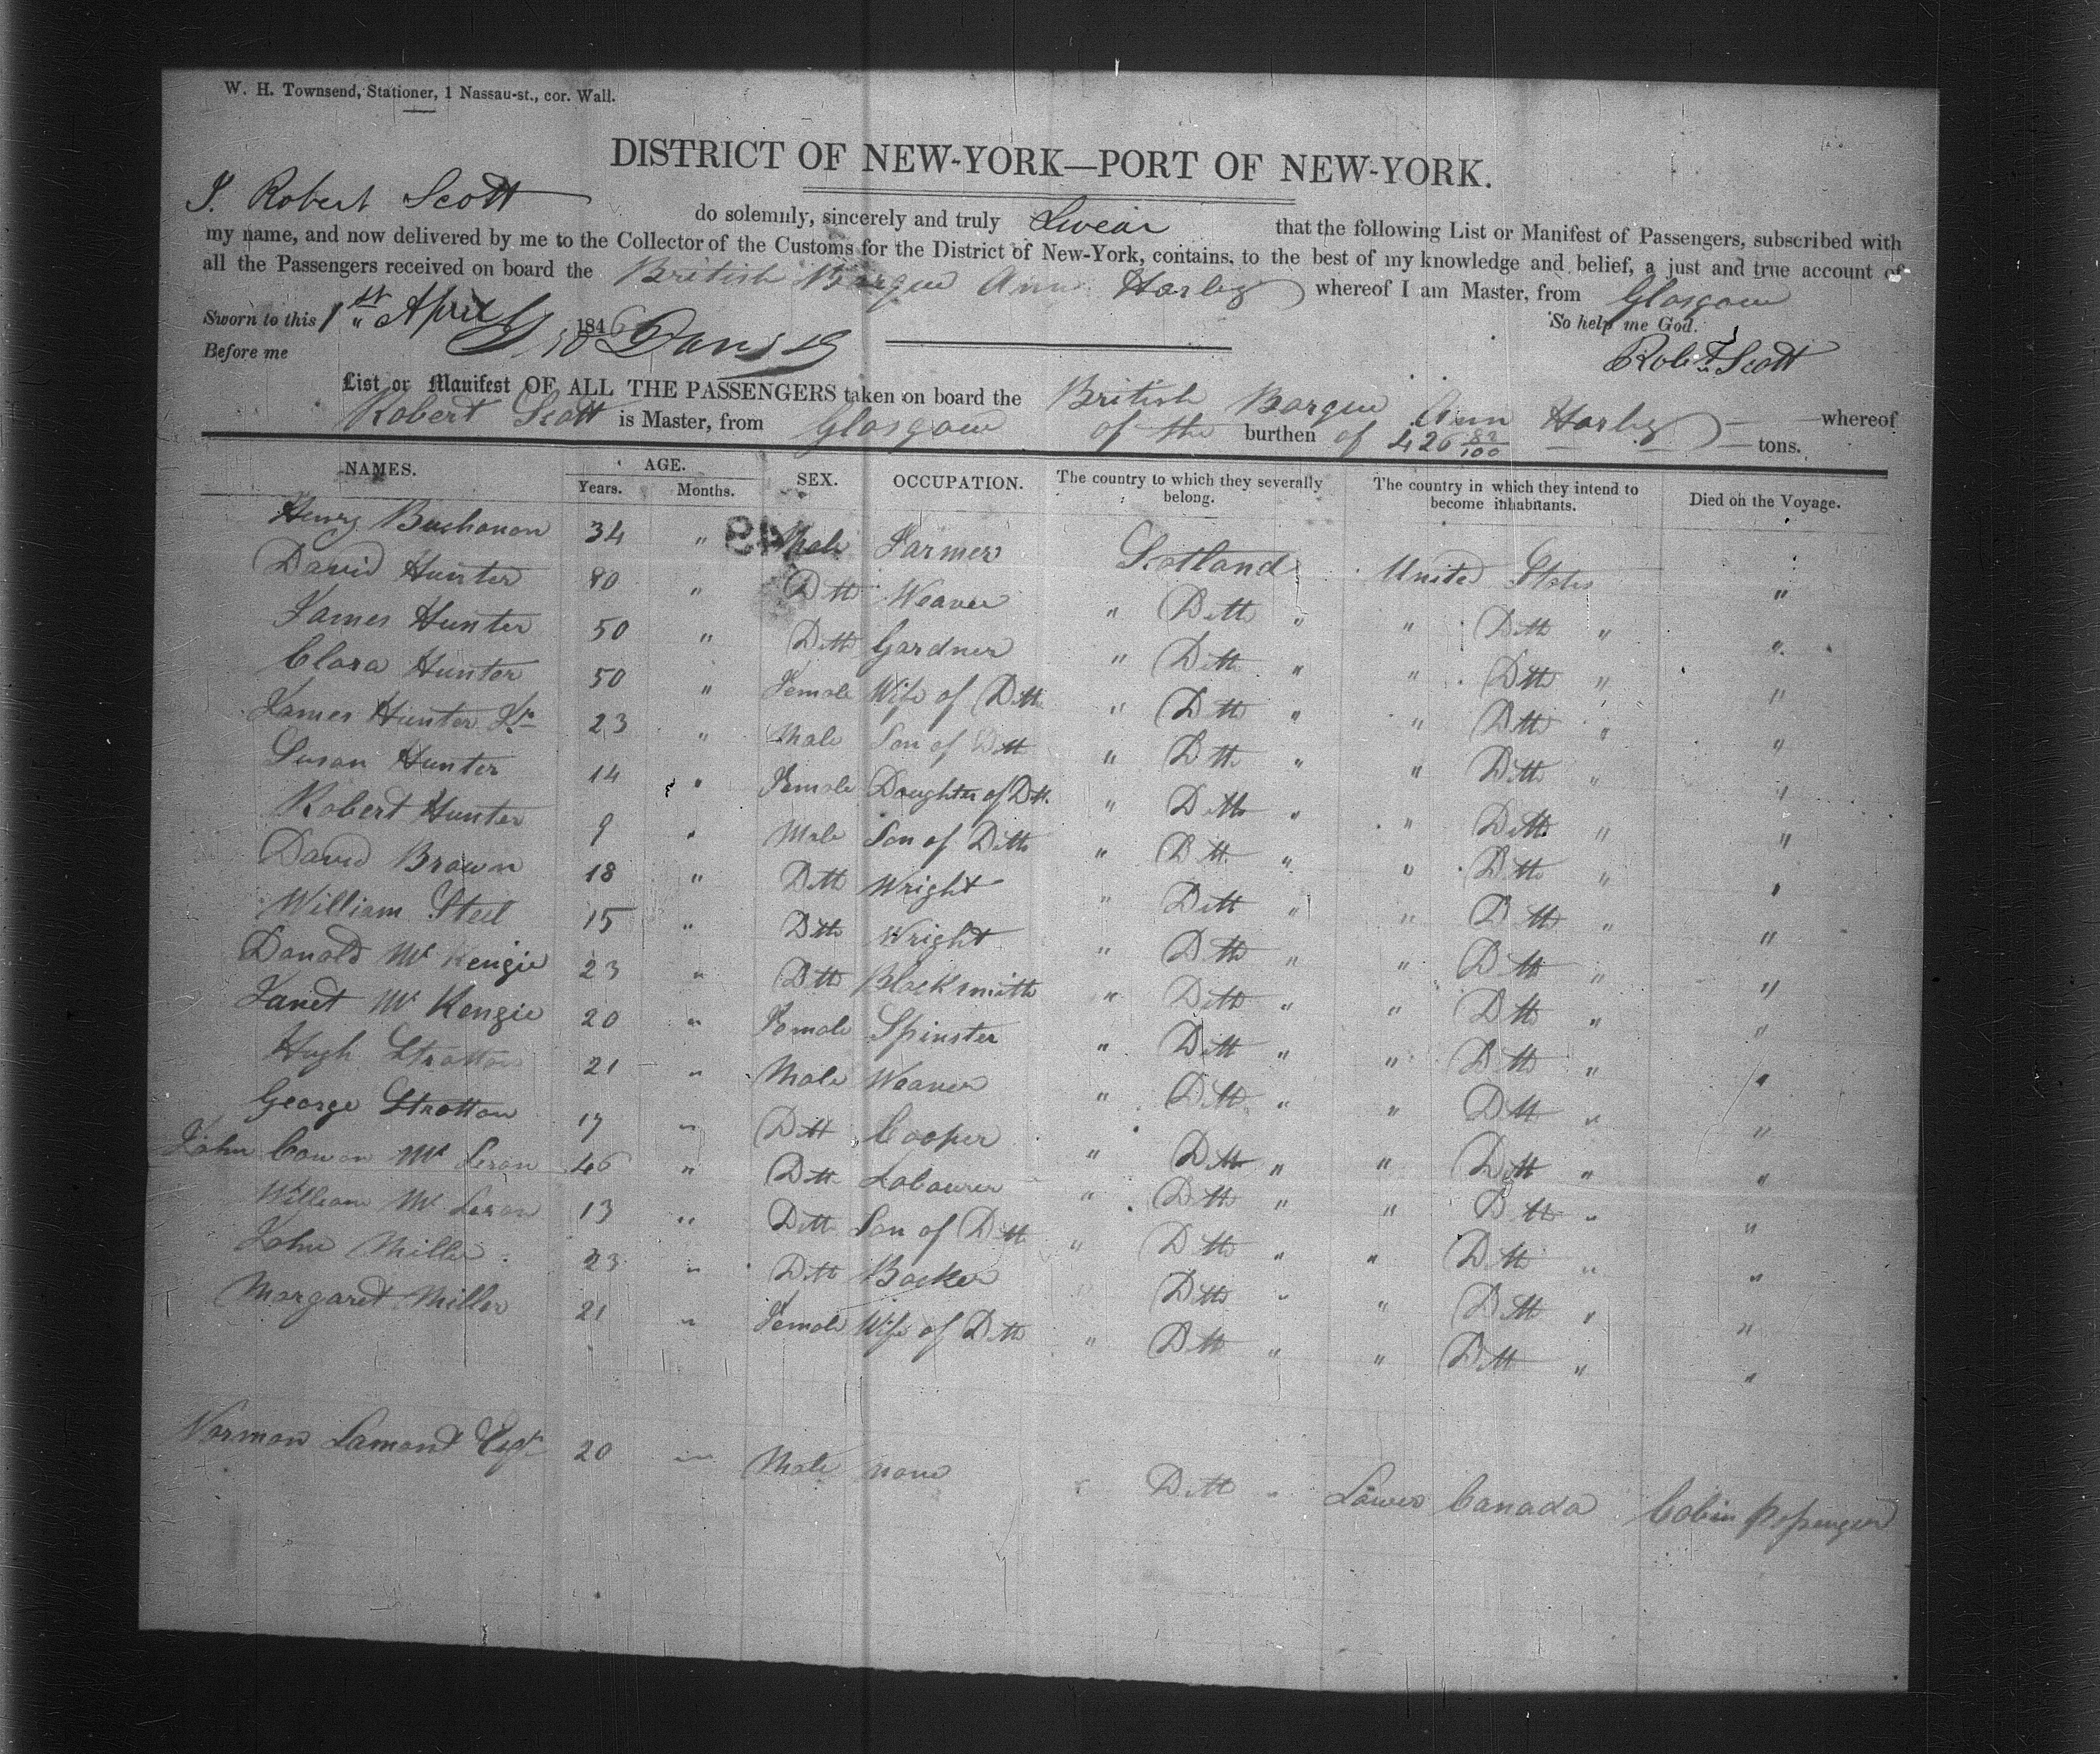 W. H. Townsend, Stationer, 1 Nassau-st., cor. Wall.
DISTRICT OF NEW-YORK—PORT OF NEW-YORK.
I. Robert Scott do solemnly, sincerely and truly Swear that the following List or Manifest of Passengers, subscribed with
my name, and now delivered by me to the Collector of the Customs for the District of New-York, contains, to the best of my knowledge and belief, a just and true account of
all the Passengers received on board the British Barque Ann Harley whereof I am Master, from Glasgow
Sworn to this 1st April 1846 So help me God.
Before me Robt. Scott
List or Manifest OF ALL THE PASSENGERS taken on board the British Barque Ann Harley whereof
Robert Scott is Master, from Glasgow of the burthen of 426 82/100 tons.
NAMES. AGE. SEX. OCCUPATION. The country to which they severally belong. The country in which they intend to become inhabitants. Died on the Voyage.
Years. Months.
Henry Buchanan 34 " Male Farmer Scotland United States "
David Hunter 80 " Ditto Weaver " Ditto " " Ditto " "
James Hunter 50 " Ditto Gardner " Ditto " " Ditto " "
Clara Hunter 50 " Female Wife of Ditto " Ditto " " Ditto " "
James Hunter Jr 23 " Male Son of Ditto " Ditto " " Ditto " "
Susan Hunter 14 " Female Daughter of Ditto " Ditto " " Ditto " "
Robert Hunter 9 " Male Son of Ditto " Ditto " " Ditto " "
David Brown 18 " Ditto Wright " Ditto " " Ditto " "
William Steel 15 " Ditto Wright " Ditto " " Ditto " "
Donald Mc Kenzie 23 " Ditto Blacksmith " Ditto " " Ditto " "
Janet Mc Kenzie 20 " Female Spinster " Ditto " " Ditto " "
Hugh Stratton 21 " Male Weaver " Ditto " " Ditto " "
George Stratton 17 " Ditto Cooper " Ditto " " Ditto " "
John Cowan Mc 46 " Ditto Labourer " Ditto " " Ditto " "
William Mc 13 " Ditto Son of Ditto " Ditto " " Ditto " "
John Miller 23 " Ditto Baker " Ditto " " Ditto " "
Margaret Miller 21 " Female Wife of Ditto " Ditto " " Ditto " "
Norman Lamond Esqr 20 " Male none " Ditto " Lower Canada Cabin Passenger